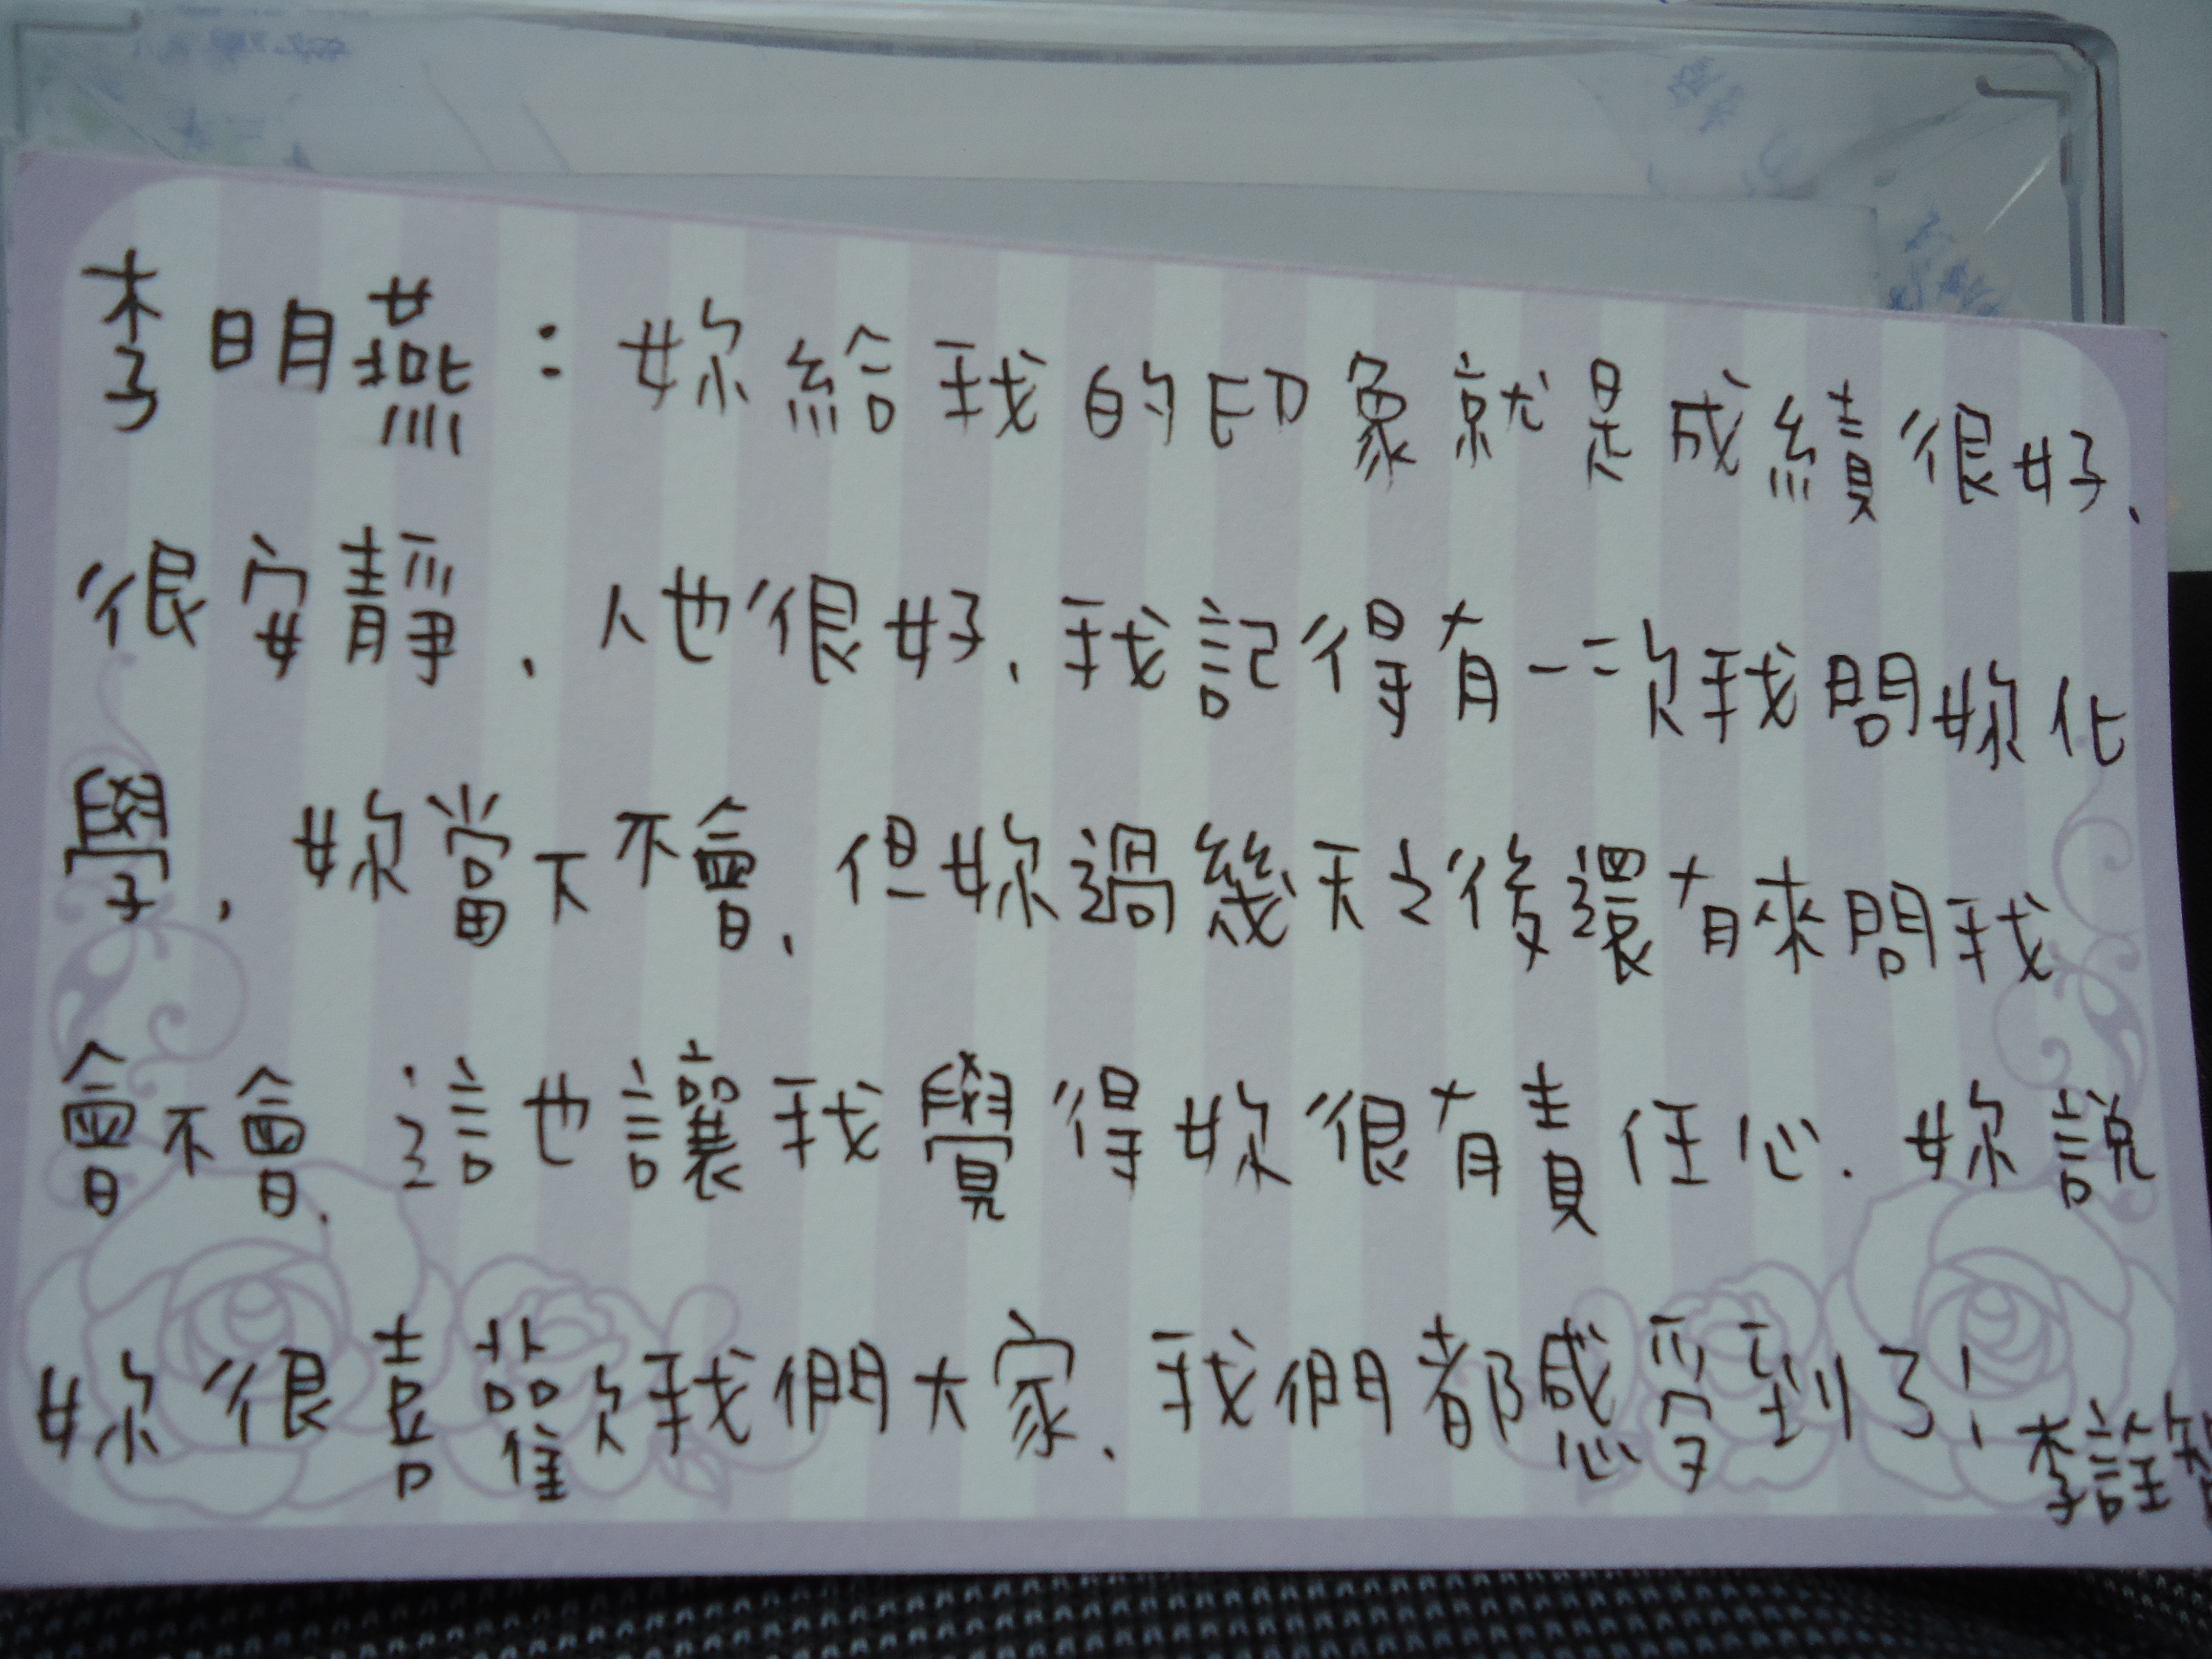 李明燕：妳給我的印象就是成績很好、
很安靜、人也很好、我記得有一次我問妳化
學、妳當下不會、但妳過幾天之後還有來問我
會不會、這也讓我覺得妳很有責任心、妳說
妳很喜歡我們大家、我們都感受到了！
李詮